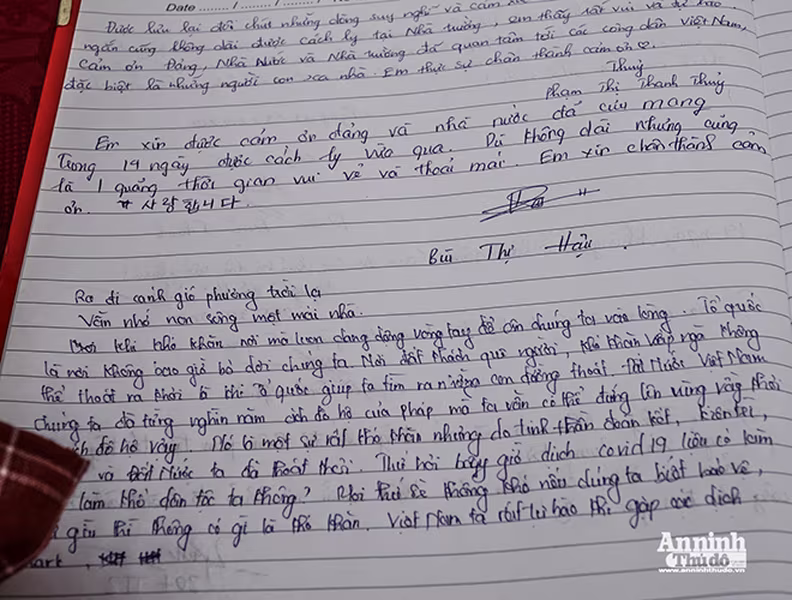 Date ......../......../........ No
Được lưu lại đôi chút những dòng suy nghĩ và cảm xúc
ngắn cũng không dài được cách ly tại Nhà trường, em thấy rất vui và tự hào.
Cảm ơn Đảng, Nhà Nước và Nhà trường đã quan tâm tới các công dân Việt Nam,
đặc biệt là những người con xa nhà. Em thực sự chân thành cảm ơn ♡.
Thuỷ
Phạm Thị Thanh Thuỷ
Em xin được cảm ơn đảng và nhà nước đã cưu mang
trong 14 ngày được cách ly vừa qua. Dù không dài nhưng cũng
là 1 quãng thời gian vui vẻ và thoải mái. Em xin chân thành cảm
ơn. # 사랑합니다.
Bùi Thị Hậu.
Ra đi cánh gió phương trời lạ
Vẫn nhớ non sông một mái nhà.
khi khó khăn nơi mà luôn dang rộng vòng tay để ôn chúng ta vào lòng. Tổ quốc
là nơi không bao giờ bỏ rơi chúng ta. Nơi đất khách quê người, khi khăn vấp ngã không
thể thoát ra khỏi là thì tổ quốc giúp ta tìm ra những con đường thoát. Đất Nước Việt Nam
chúng ta đã từng nghìn năm đô hộ của pháp mà ta vẫn có thể đứng lên vững vàng thoát
ách đô hộ vậy. Đó là một sự rất khó khăn nhưng do tinh thần đoàn kết, kiên trì,
và Đất Nước ta đã thoát khỏi. Thử hỏi bây giờ dịch covid 19 liệu có làm
làm khó dân tộc ta không? Mọi thứ sẽ không khó nếu chúng ta biết bảo vệ,
giữ thì không có gì là khó khăn. Việt Nam ta rất tự hào khi gặp các dịch
An ninh
Thủ đô
www.anninhthudo.vn